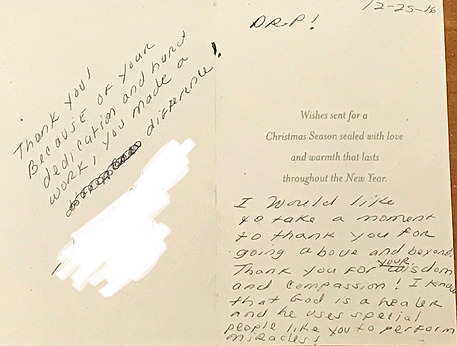 Thank you!
Because of your
dedication and hard
work, you made a
difference!
12-25-16
DRP!
Wishes sent for a
Christmas Season sealed with love
and warmth that lasts
throughout the New Year.
I would like
to take a moment
to thank you for
going above and beyond.
Thank you for your wisdom
and compassion! I know
that God is a healer
and he uses special
people like you to perform
miracles!